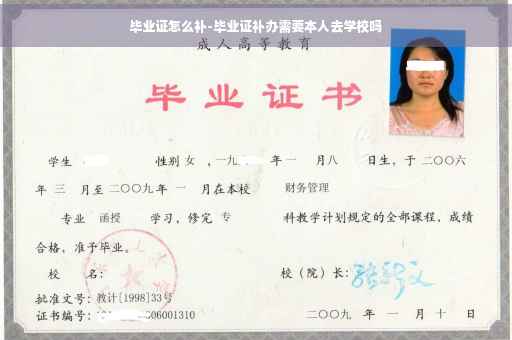 毕业证怎么补-毕业证补办需要本人去学校吗
成人高等教育
毕业证书
学生 性别 女 ，一九 年 一 月 八 日生，于 二〇〇六
年 三 月至 二〇〇九 年 一 月在本校 财务管理
专业 函授 学习，修完 专 科教学计划规定的全部课程，成绩
合格，准予毕业。
校 名： 校（院）长：
批准文号：教计[1998]33号
证书编号： 06001310 二〇〇九 年 一 月 十 日